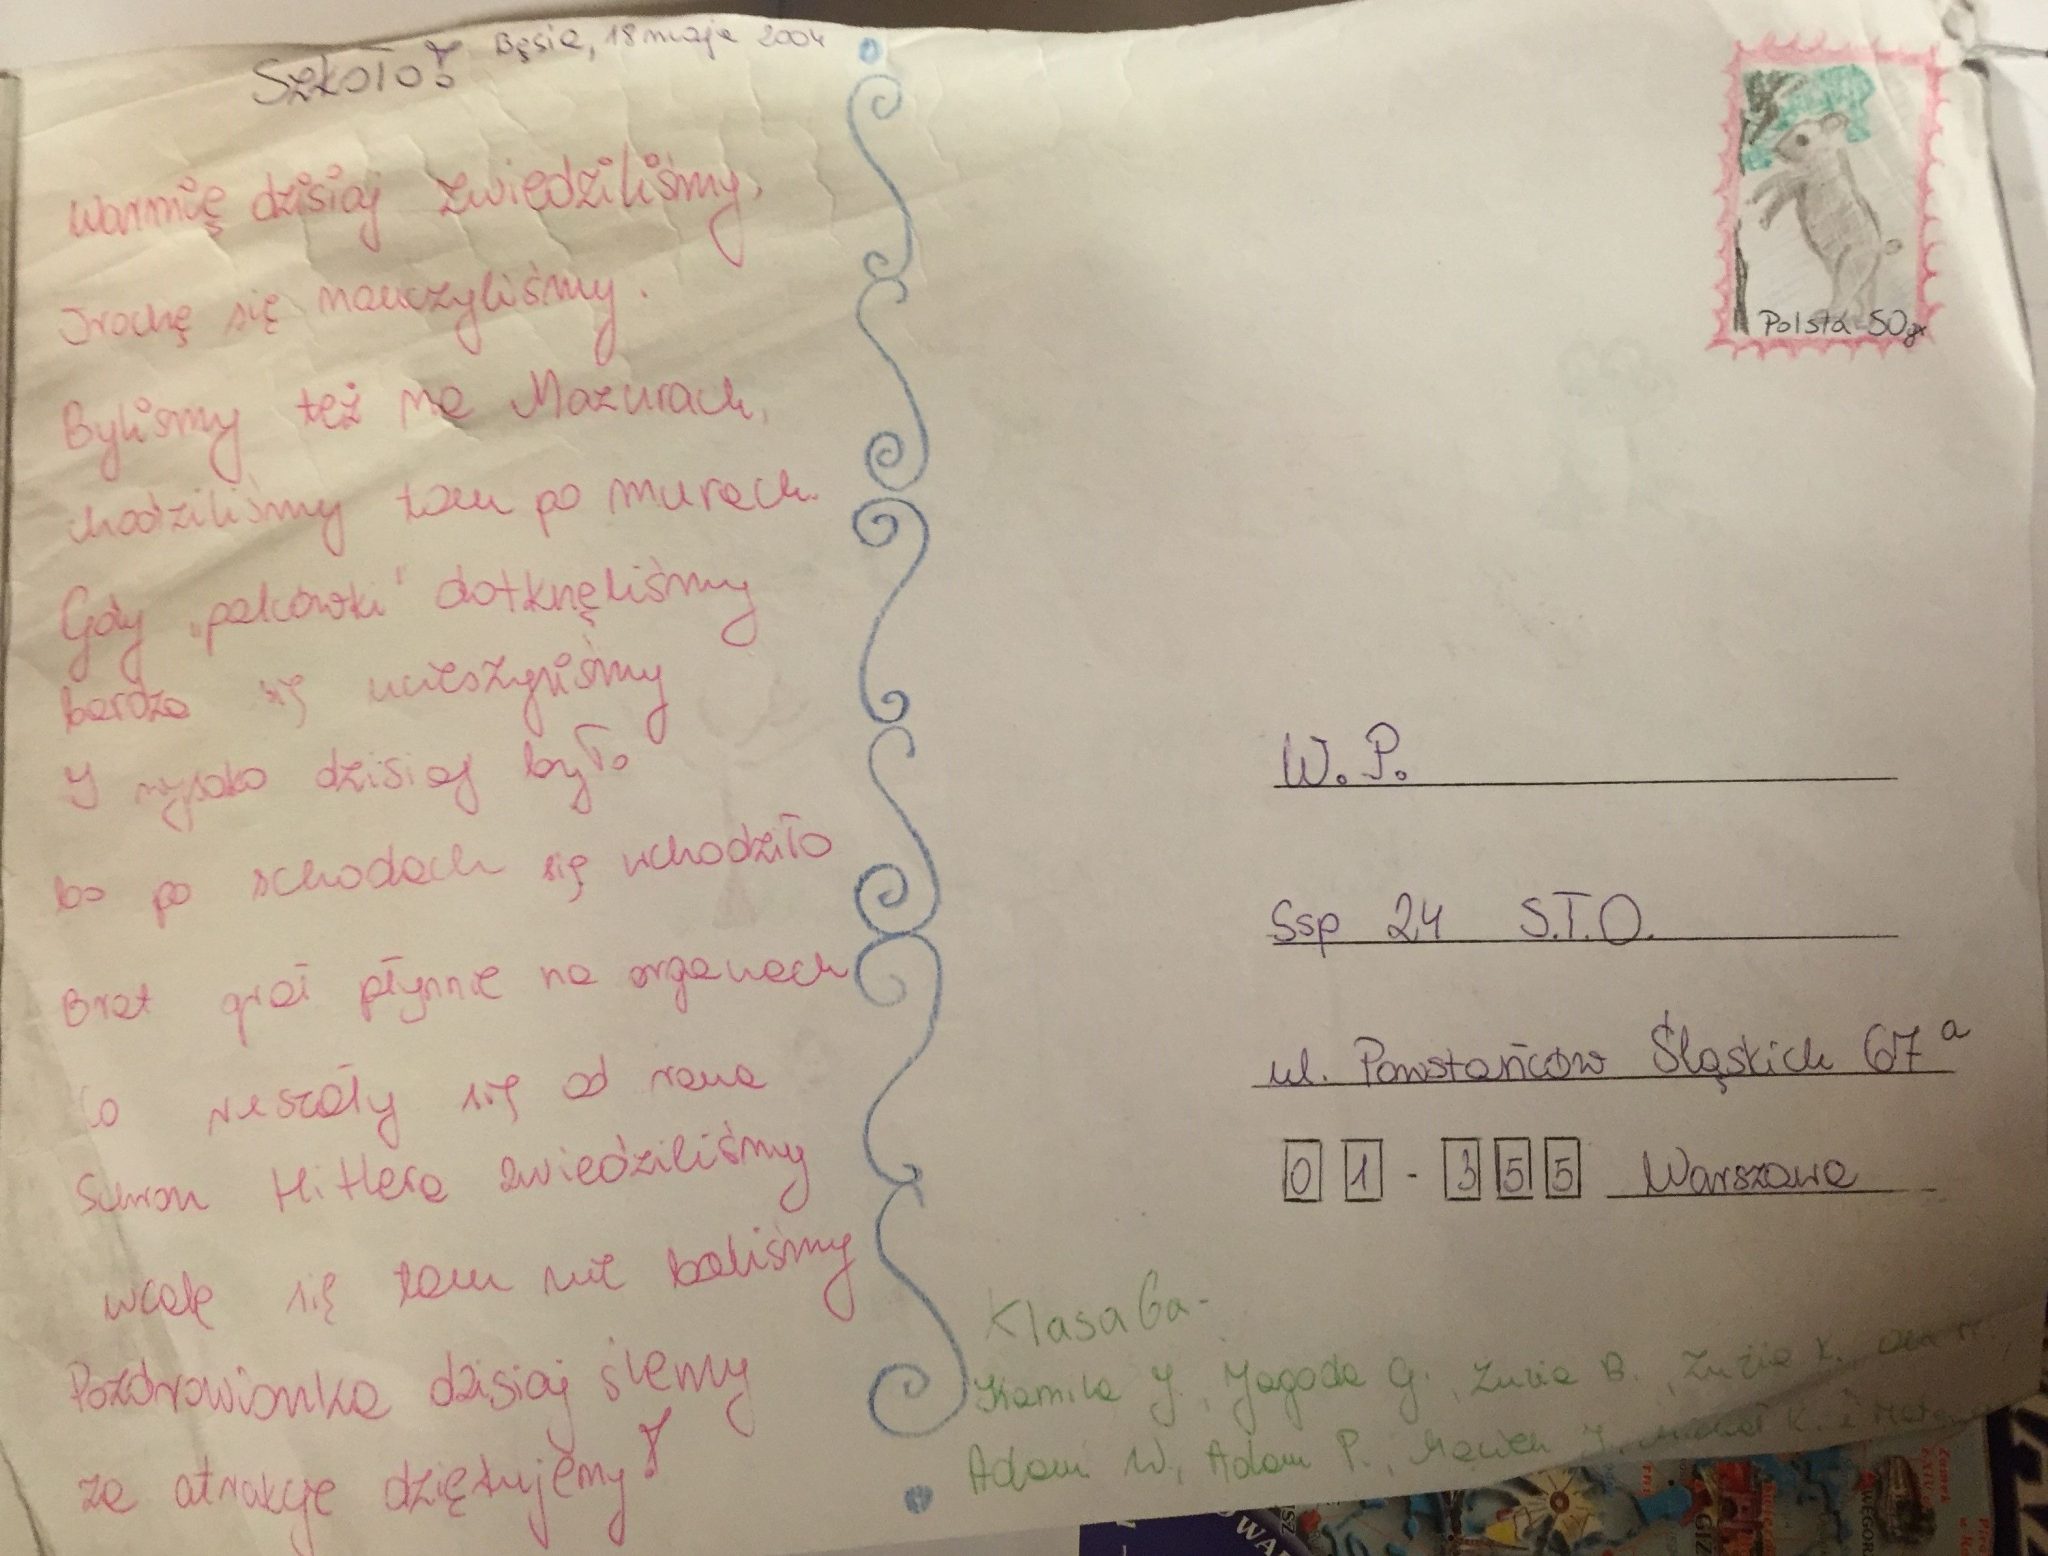 Bęsia, 18 maja 2004
Szkoło!
Warmię dzisiaj zwiedziliśmy,
Trochę się nauczyliśmy.
Byliśmy też na Mazurach,
chodziliśmy tam po murach.
Gdy „palcówki" dotknęliśmy
bardzo się ucieszyliśmy
I wysoko dzisiaj było
bo po schodach się wchodziło
Brat grał płynnie na organach
Co ruszały się od rana
Schron Hitlera zwiedziliśmy
wcale się tam nie baliśmy
Pozdrowionka dzisiaj ślemy
za atrakcje dziękujemy!
Polska 50 gr
W. P.
Ssp 24 S.T.O.
ul. Powstańców Śląskich 67 a
01-355 Warszawa
Klasa 6a-
Kamila J., Jagoda G., Zuzia B., Zuzia K., Ola
Adam W., Adam P., Maciek J. Michał K. i